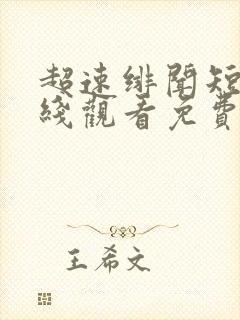 超速绯聞短
綫觀看免費
王希文